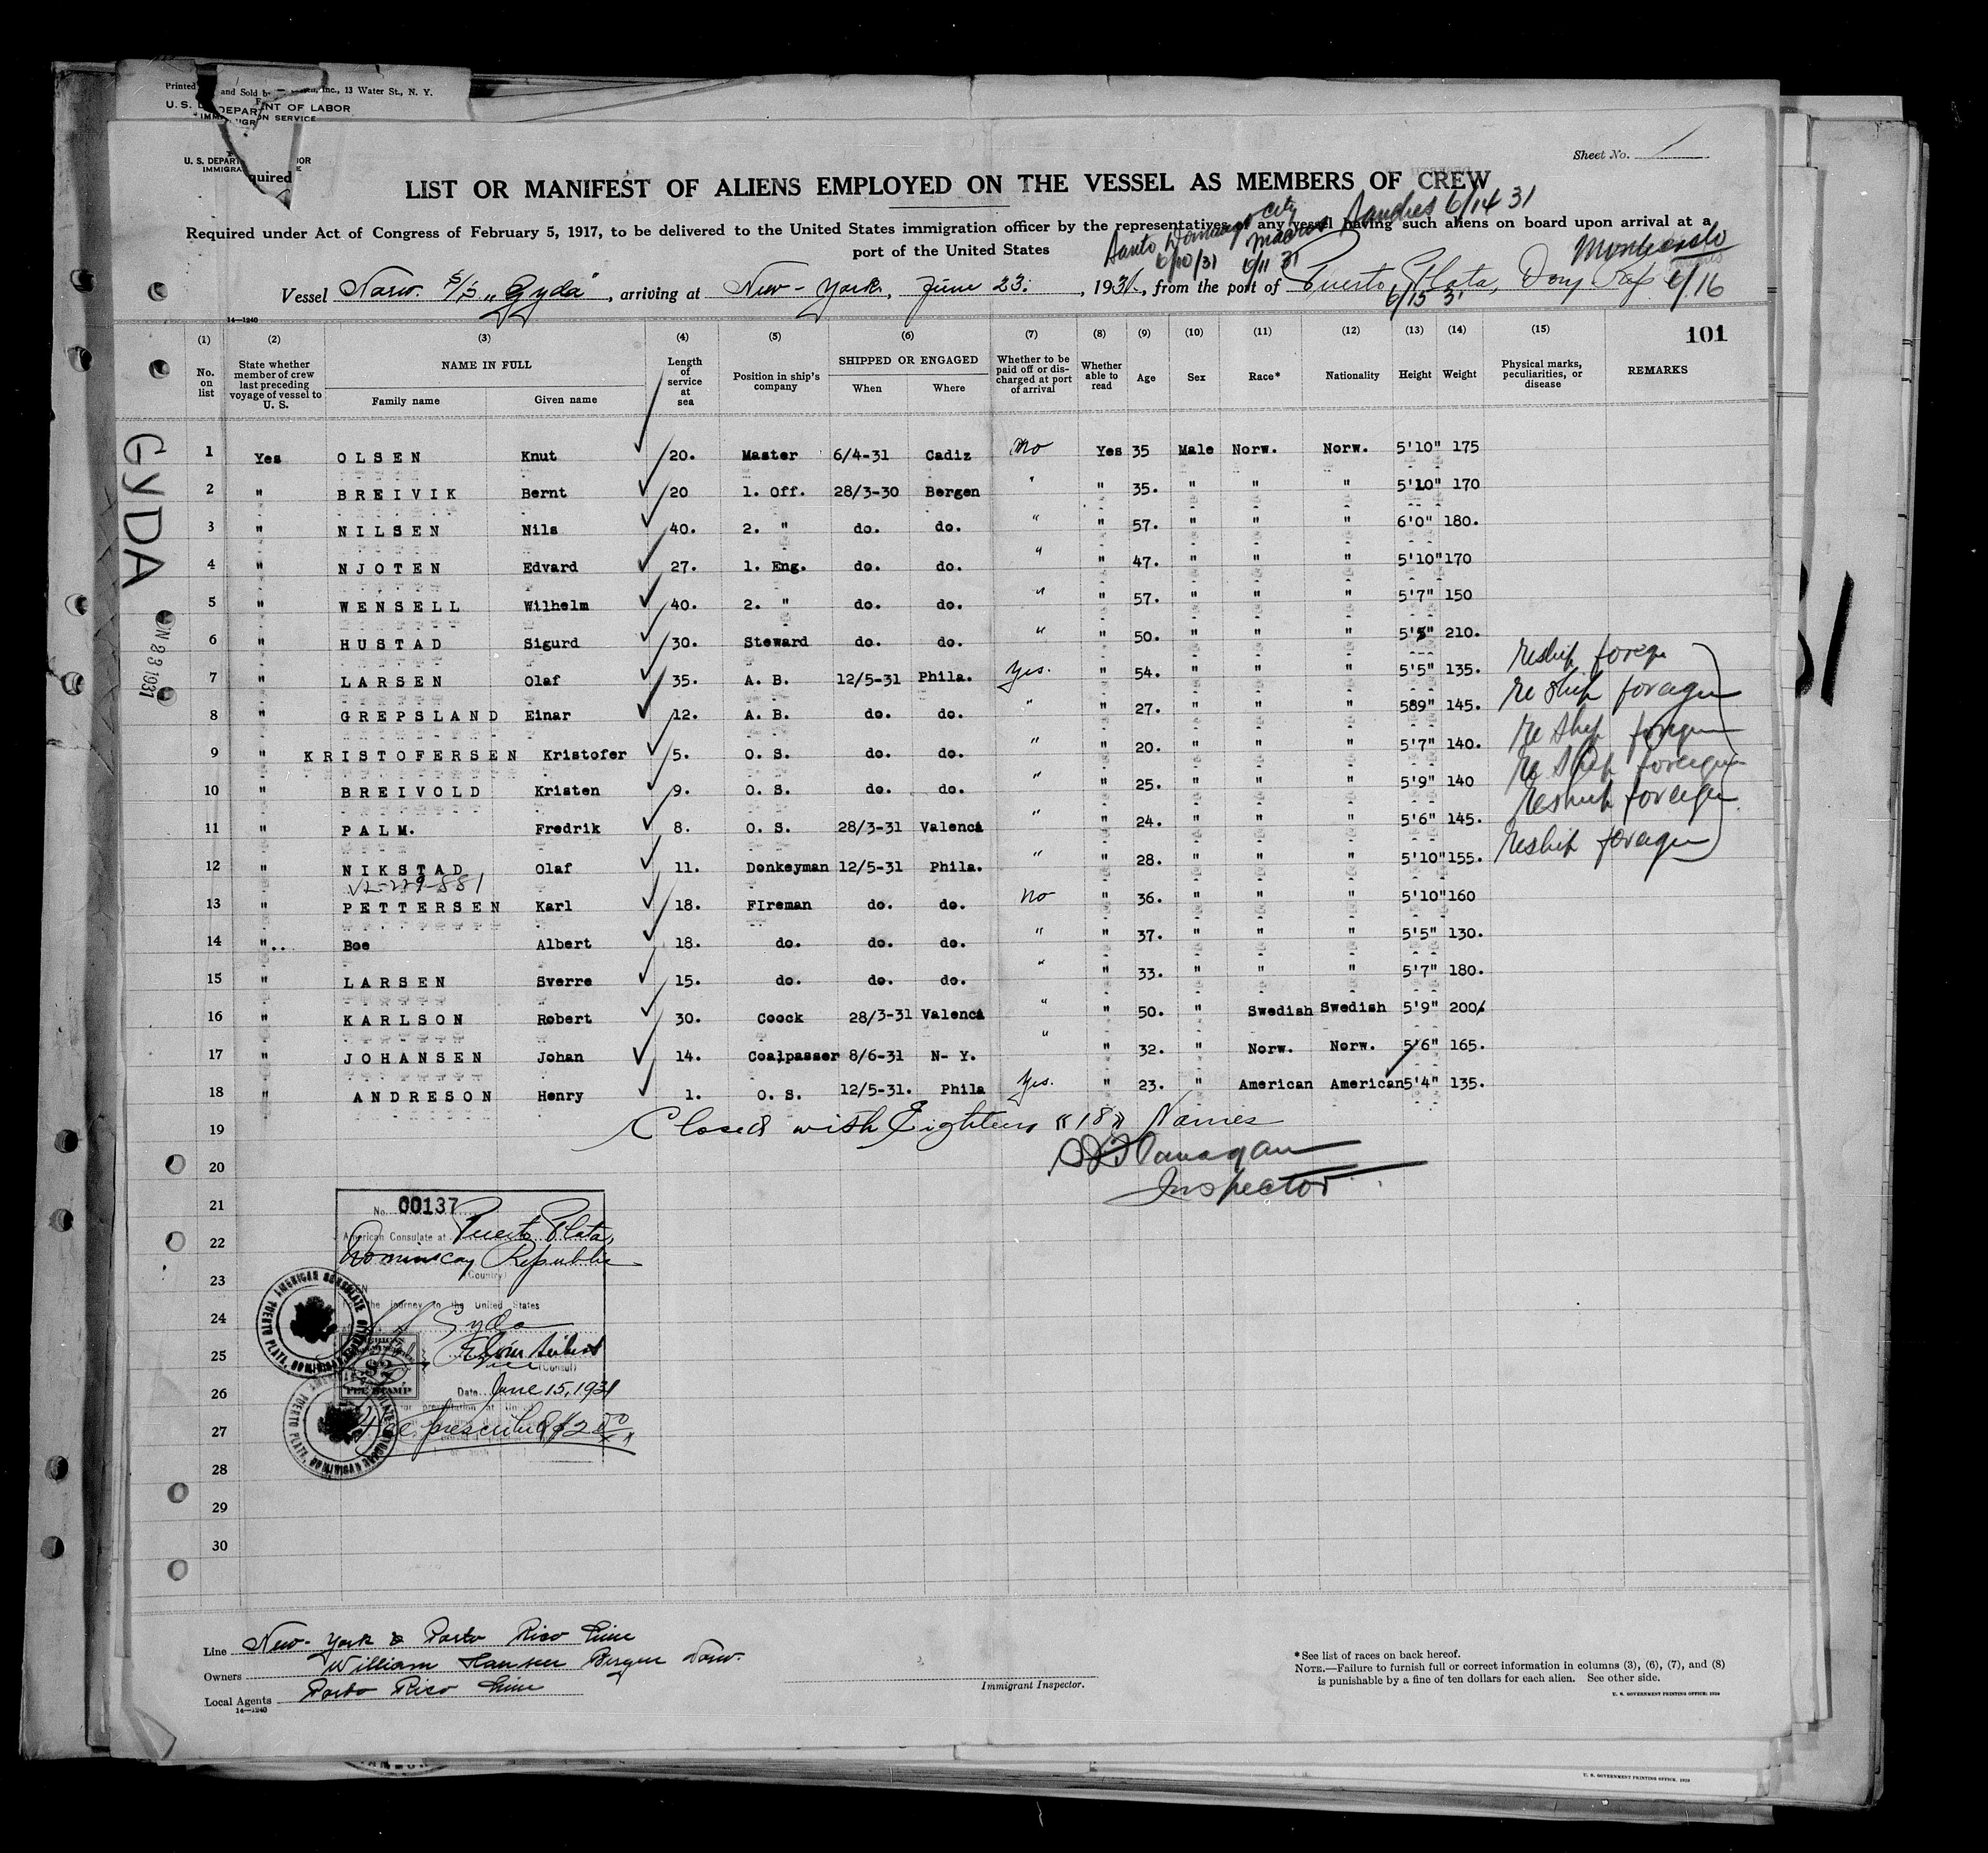 Printed and Sold by Inc., 13 Water St., N. Y.
U. S. DEPARTMENT OF LABOR
IMMIGRATION SERVICE
U. S. DEPART OR
IMMIGRA E
quired
Sheet No. 1
LIST OR MANIFEST OF ALIENS EMPLOYED ON THE VESSEL AS MEMBERS OF CREW
Required under Act of Congress of February 5, 1917, to be delivered to the United States immigration officer by the representatives of any vessel having such aliens on board upon arrival at a
port of the United States
Santo Domingo City 6/10/31 Macoris 6/11 31 Sanches 6/14 31
Montecristo 6/16
Vessel Norw. S/S „Gyda", arriving at New-York, June 23., 1931, from the port of Puerto Plata, Dom Rep
6/15 31
14—1240
(1) (2) (3) (4) (5) (6) (7) (8) (9) (10) (11) (12) (13) (14) (15) 101
No. on list
State whether member of crew last preceding voyage of vessel to U. S.
NAME IN FULL
Family name Given name
Length of service at sea
Position in ship's company
SHIPPED OR ENGAGED
When Where
Whether to be paid off or discharged at port of arrival
Whether able to read
Age Sex Race* Nationality Height Weight
Physical marks, peculiarities, or disease
REMARKS
GYDA
N 23 1931
1 Yes OLSEN Knut 20. Master 6/4-31 Cadiz No Yes 35 Male Norw. Norw. 5'10" 175
2 " BREIVIK Bernt 20 1. Off. 28/3-30 Bergen " " 35. " " " 5'10" 170
3 " NILSEN Nils 40. 2. " do. do. " " 57. " " " 6'0" 180.
4 " NJOTEN Edvard 27. 1. Eng. do. do. " " 47. " " " 5'10" 170
5 " WENSELL Wilhelm 40. 2. " do. do. " " 57. " " " 5'7" 150
6 " HUSTAD Sigurd 30. Steward do. do. " " 50. " " " 5'5" 210.
7 " LARSEN Olaf 35. A. B. 12/5-31 Phila. Yes. " 54. " " " 5'5" 135. reship foreign
8 " GREPSLAND Einar 12. A. B. do. do. " " 27. " " " 589" 145. reship foreign
9 " KRISTOFERSEN Kristofer 5. O. S. do. do. " " 20. " " " 5'7" 140. reship foreign
10 " BREIVOLD Kristen 9. O. S. do. do. " " 25. " " " 5'9" 140 reship foreign
11 " PALM. Fredrik 8. O. S. 28/3-31 Valenca " " 24. " " " 5'6" 145. reship foreign
12 " NIKSTAD Olaf 11. Donkeyman 12/5-31 Phila. " " 28. " " " 5'10" 155. reship foreign
13 " PETTERSEN Karl 18. FIreman do. do. No " 36. " " " 5'10" 160
14 ".. Boe Albert 18. do. do. do. " " 37. " " " 5'5" 130.
15 " LARSEN Sverre 15. do. do. do. " " 33. " " " 5'7" 180.
16 " KARLSON Robert 30. Coock 28/3-31 Valenca " " 50. " Swedish Swedish 5'9" 200
17 " JOHANSEN Johan 14. Coalpasser 8/6-31 N- Y. " " 32. " Norw. Norw. 5'6" 165.
18 " ANDRESON Henry 1. O. S. 12/5-31. Phila Yes. " 23. " American American 5'4" 135.
19 Closed with Eighteen "18" Names
20 Flanagan
21 Inspector
22
23
24
25
26
27
28
29
30
No. 00137
American Consulate at Puerto Plata,
Dominican Republic
(Country)
the journey to the United States
Gyda
(Consul)
Date June 15, 1931
FEE STAMP
Fee prescribed $2.00
AMERICAN CONSULATE PUERTO PLATA, DOMINICAN REPUBLIC
Line New-York & Porto Rico Line
Owners William Hansen Bergen Norw.
Local Agents Porto Rico Line
14—1240
Immigrant Inspector.
*See list of races on back hereof.
NOTE.—Failure to furnish full or correct information in columns (3), (6), (7), and (8)
is punishable by a fine of ten dollars for each alien. See other side.
U. S. GOVERNMENT PRINTING OFFICE: 1930
U. S. GOVERNMENT PRINTING OFFICE: 1929